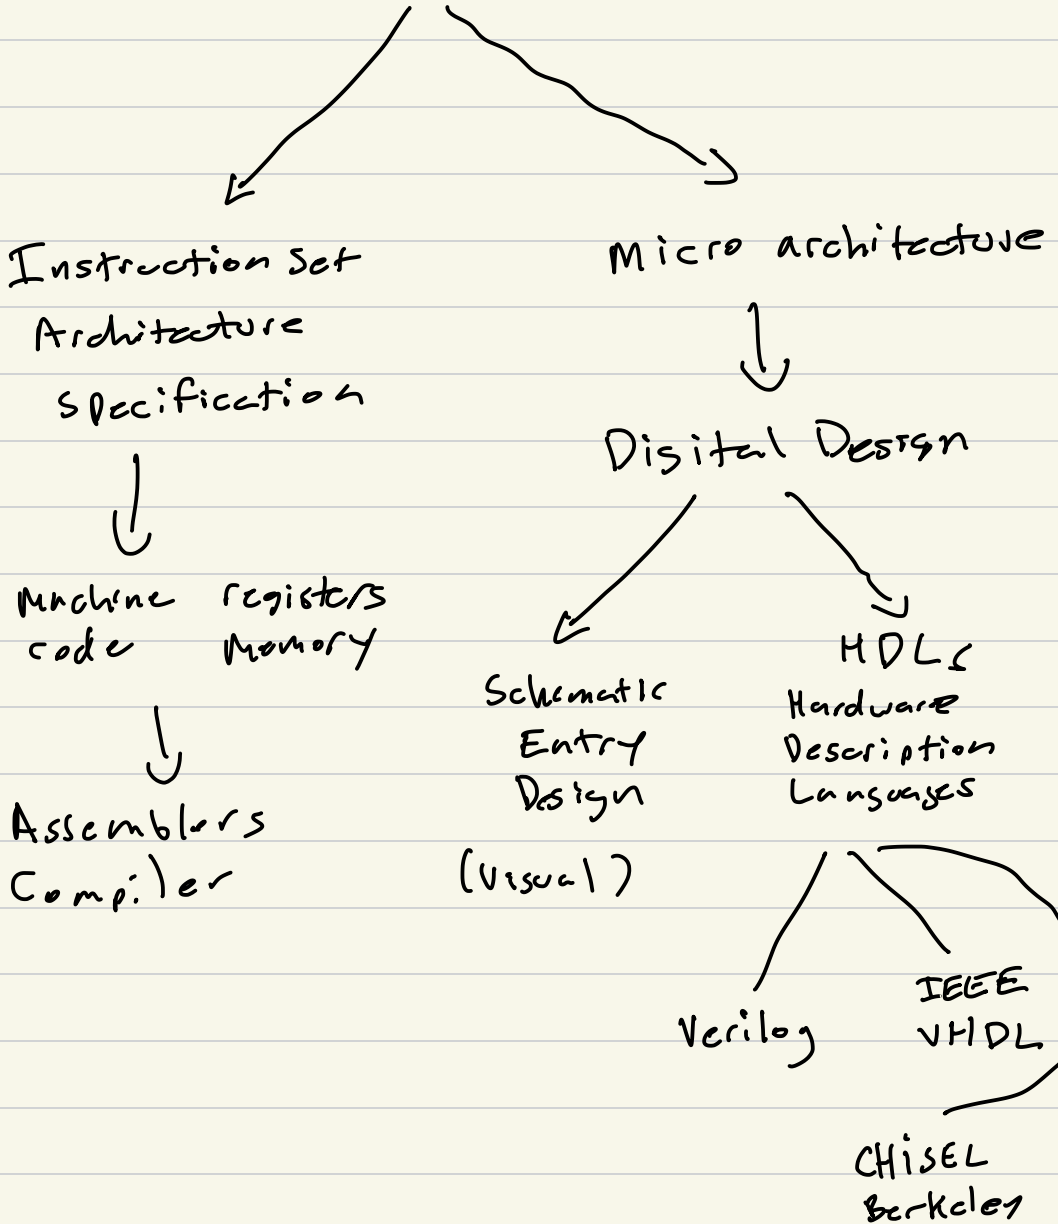 Instruction Set
Architecture
Specification
Machine registers
code Memory
Assemblers
Compiler
Micro architecture
Digital Design
Schematic
Entry
Design
(Visual)
HDLs
Hardware
Description
Languages
Verilog
IEEE
VHDL
CHISEL
Berkeley